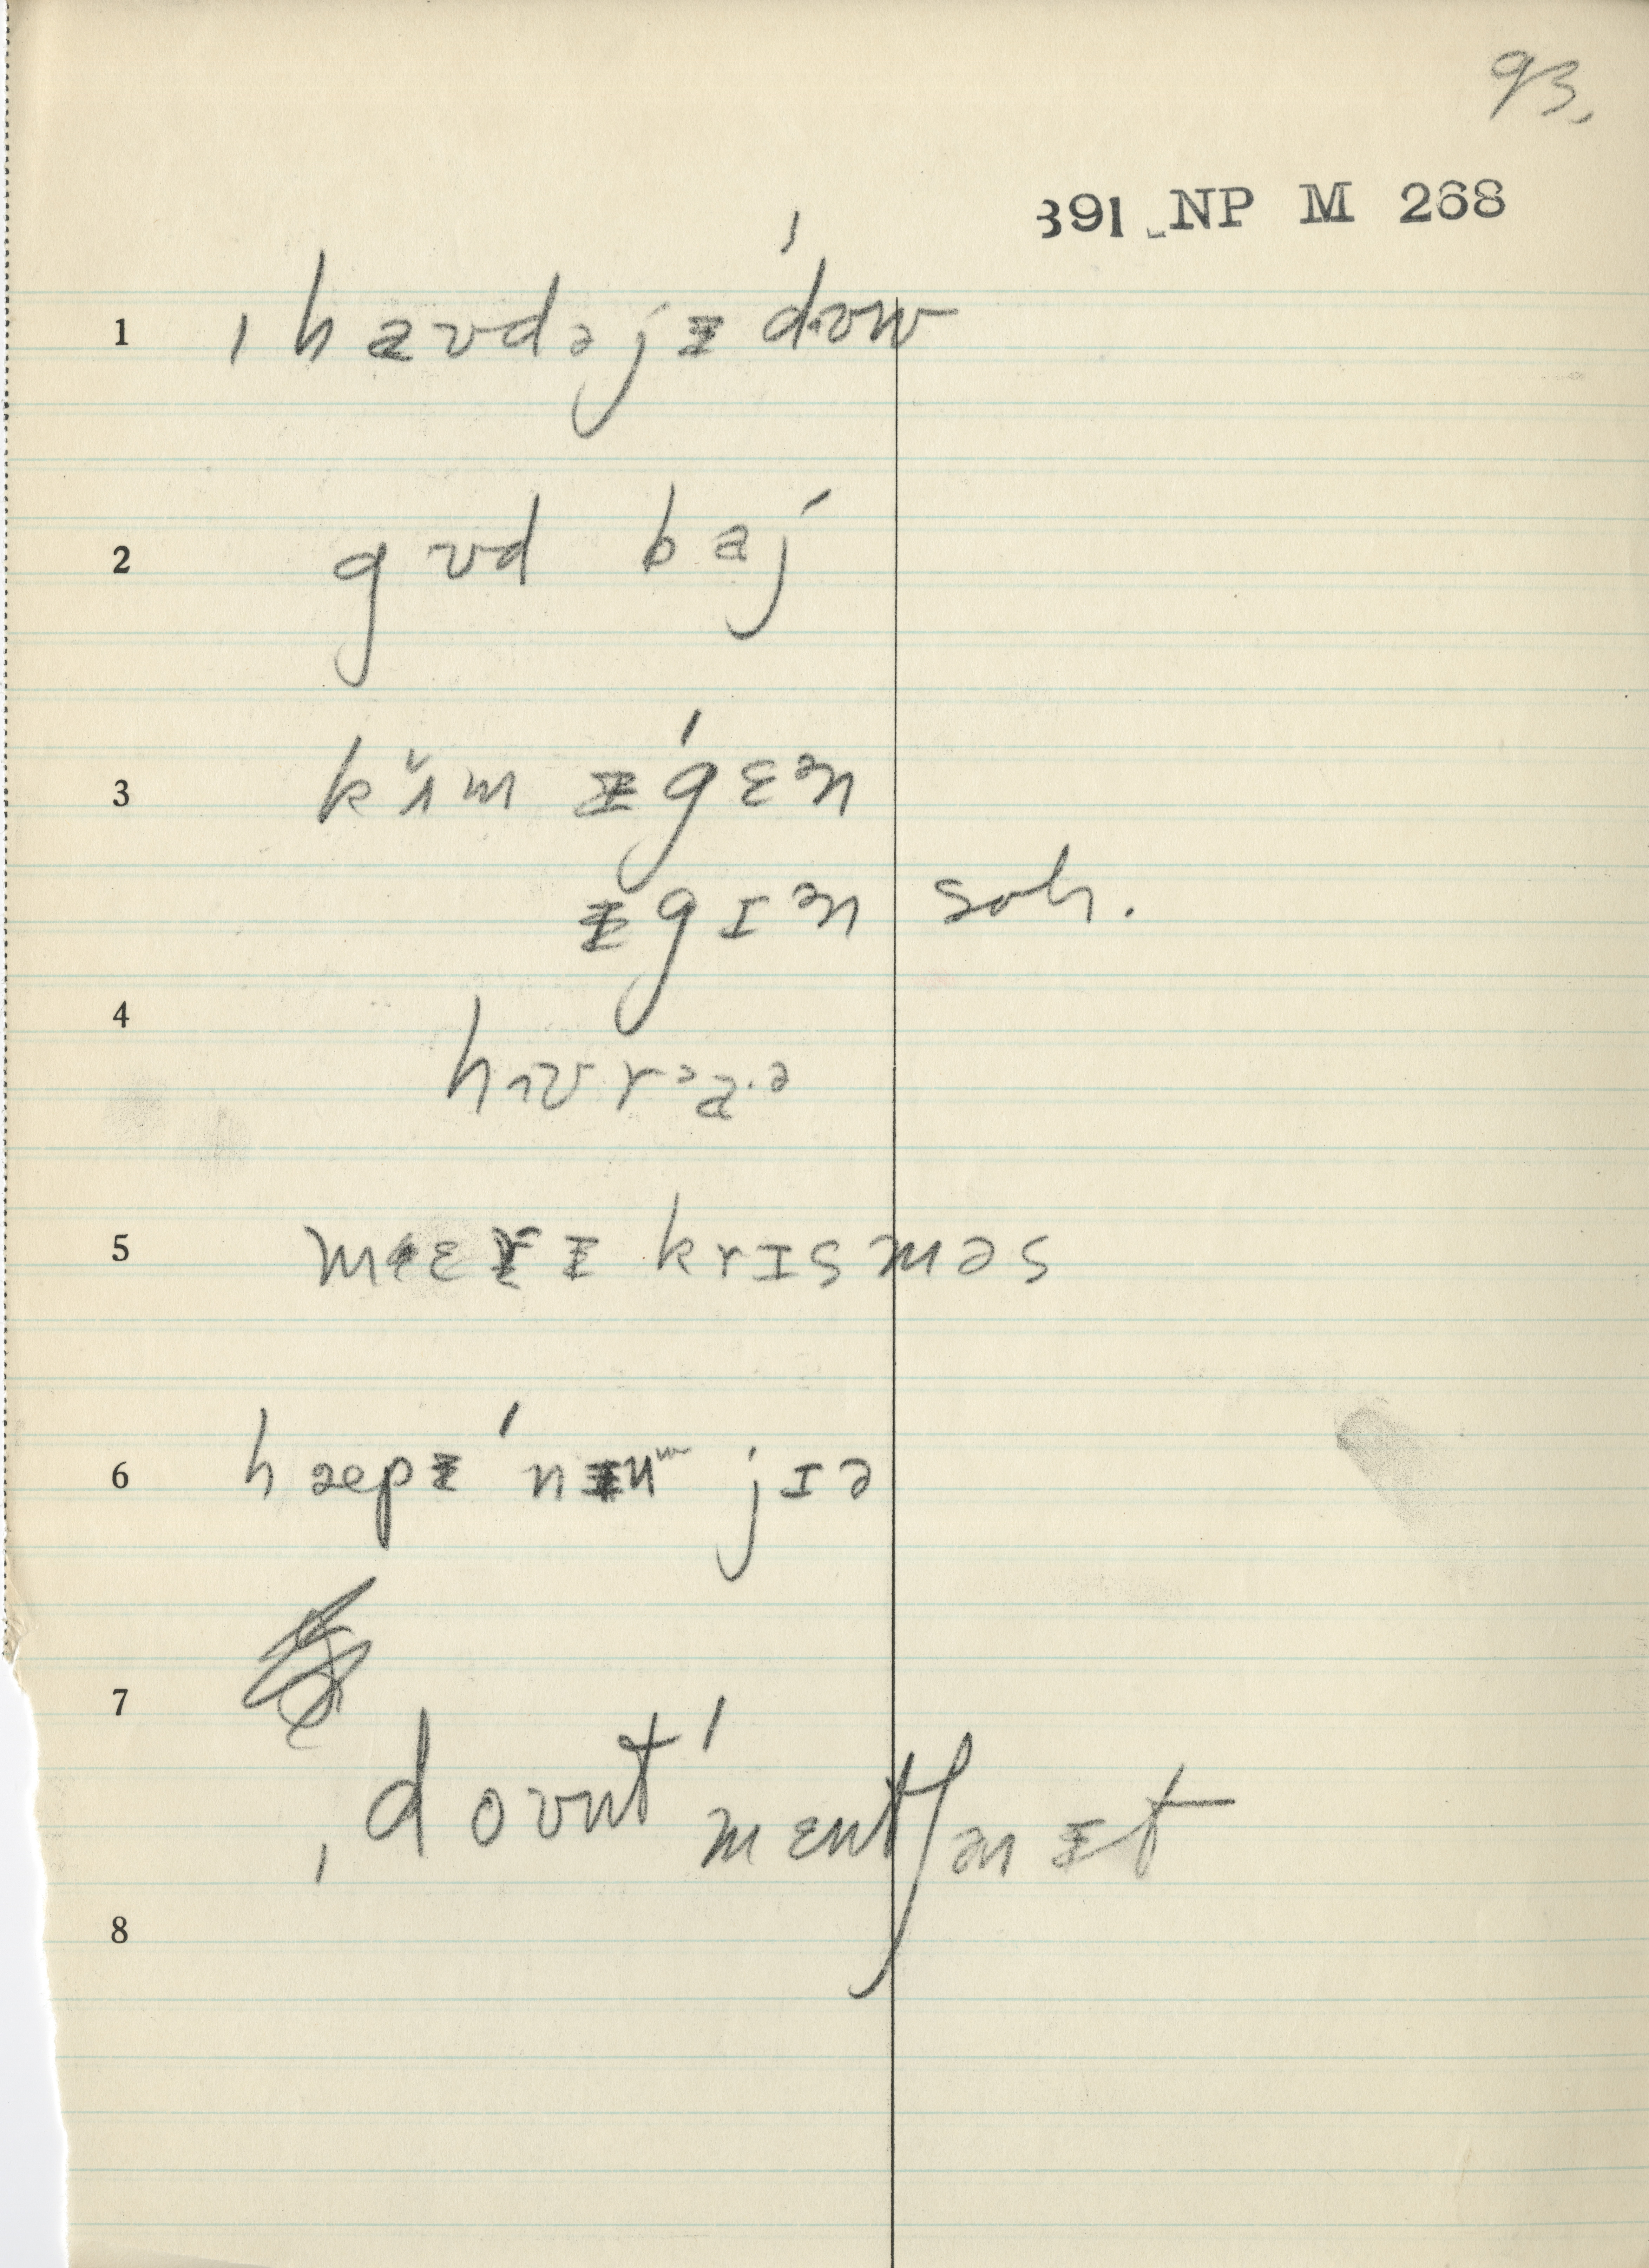 93.
391 NP M 268
1 ˌhaʊdəjᵻˈdʊu
2 gʊd baj
3 kʌ̆m ᵻˈgɛən
ᵻgɪən soh.
4 hɪʊrᵊa·ə
5 mɛrᵻ krɪsməs
6 hæpᵻ ˈnᵻuᵚ jɪə
7 ˌdoʊntˈmɛntʃənᵻt
8